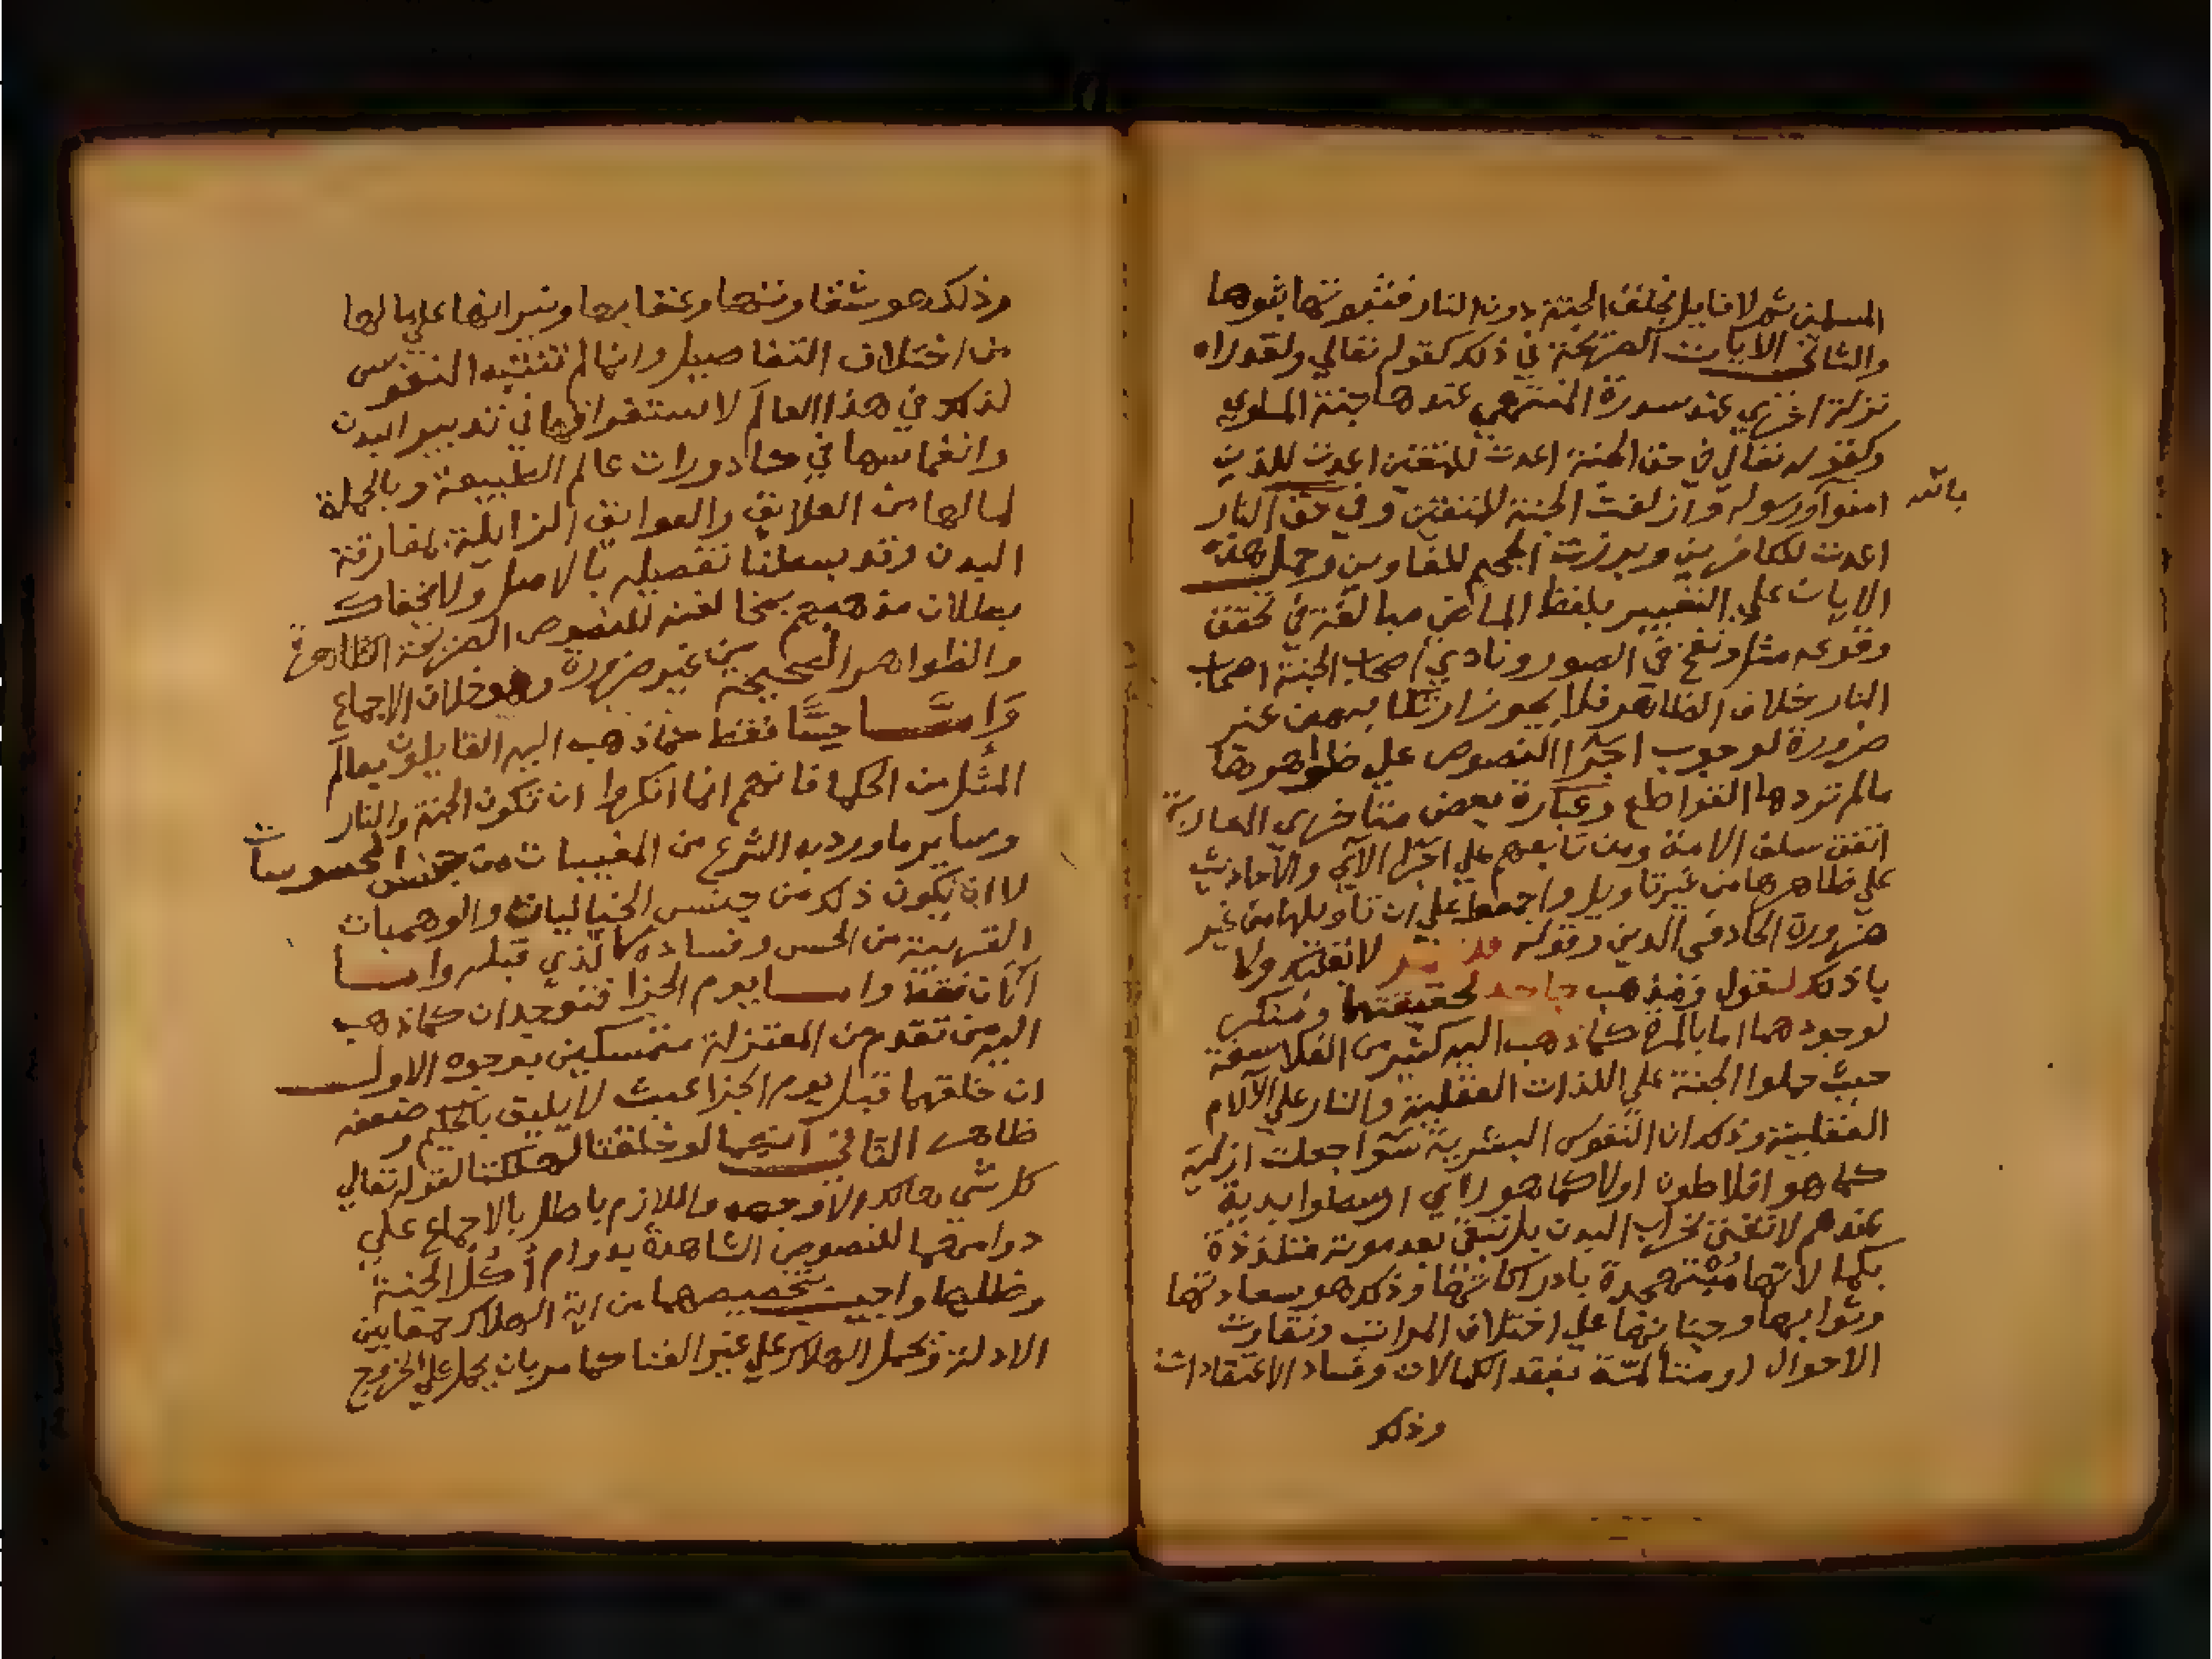 المسلمين ثم لا قايل بخلق الجنة دون النار فثبوتها ثبوتها
والثاني الايات الصريحة في ذلك كقوله تعالي ولقد راه
نزلة اخري عند سدرة المنتهي عندها جنة الماوي
وكقوله تعالي في حق الجنة اعدت للمتقين اعدت للذين
امنوا ورسوله وازلفت الجنة للمتقين وفي حق النار
بالله
اعدت للكافرين وبرزت الجحيم للغاوين وحمل هذه
الايات علي التعبير بلفظ الماضي مبالغة في تحقق
وقوعه مثل ونفخ في الصور ونادي اصحاب الجنة اصحاب
النار خلاف الظاهر فلا يجوز ارتكابه من غير
ضرورة لوجوب اجرا النصوص علي ظواهرها
مالم تردها القواطع وعبارة بعض متاخري المغاربة
اتفق سلف الامة ومن تابعهم علي اجرا الاي والاحاديث
علي ظاهرها من غير تاويل واجمعوا علي ان تاويلها من غير
ضرورة الحاد في الدين وقوله فلا تمل لا تلتفت ولا
باذلك لقول ومذهب جاحد لحقيقتها ومنكر
لوجودهما اما بالمرة كما ذهب اليه كثير من الفلاسفة
حيث حملوا الجنة علي اللذات العقلية والنار علي الآلام
العقلية وذلك ان النفوس البشرية سوا جعلت ازلية
كما هو افلاطون اولا كما هو راي ارسطو ابدية
عندهم لا تفني بخراب البدن بل تبقي بعد موته متلذذة
بكمالاتها مبتهجة بادراكاتها وذلك هو سعادتها
وثوابها وجنانها علي اختلاف المراتب وتفاوت
الاحوال او متالمة بفقد الكمالات وفساد الاعتقادات
وذلك
وذلك هو شقاوتها وعقابها ونيرانها علي مالها
من اختلاف التفاصيل وانما لم تتنبه النفوس
لذلك في هذا العالم لاستغراقها في تدبير البدن
وانغماسها في كدورات عالم الطبيعة وبالجملة
لمالها من العلايق والعوايق الزايلة بمفارقة
البدن وقد بسطنا تفصيله بالاصل ولا يخفاك
بطلان مذهبهم بمخالفته للنصوص الصريحة القاطعة
والظواهر الصحيحة من غير ضرورة وهو خلاف الاجماع
وامـا حسا فقط كما ذهب اليه القايلون بعالم
المثل من الحكما فانهم انما انكروا ان تكون الجنة والنار
وساير ما ورد به الشرع من المغيبات من جنس المحسوسات
لا ان يكون ذلك من جنس الخياليات والوهميات
القريبة من الحس وفساده كالذي قبله وامـا
الآن فقط وامـا يوم الجزا فتوجدان كما ذهب
اليه من تقدم من المعتزلة متمسكين بوجوه الاول
ان خلقهما قبل يوم الجزا عبث لا يليق بالحكيم وضعفه
ظاهر الثاني انهما لو خلقتا لهلكتا لقوله تعالي
كل شي هالك الا وجهه واللازم باطل بالاجماع علي
دوامهما للنصوص الشاهدة بدوام أكل الجنة
وظلها واجيب بتخصيصهما من اية الهلاك جمعا بين
الادلة وبحمل الهلاك علي غير الفنا كما مر بان يحمل علي الخروج